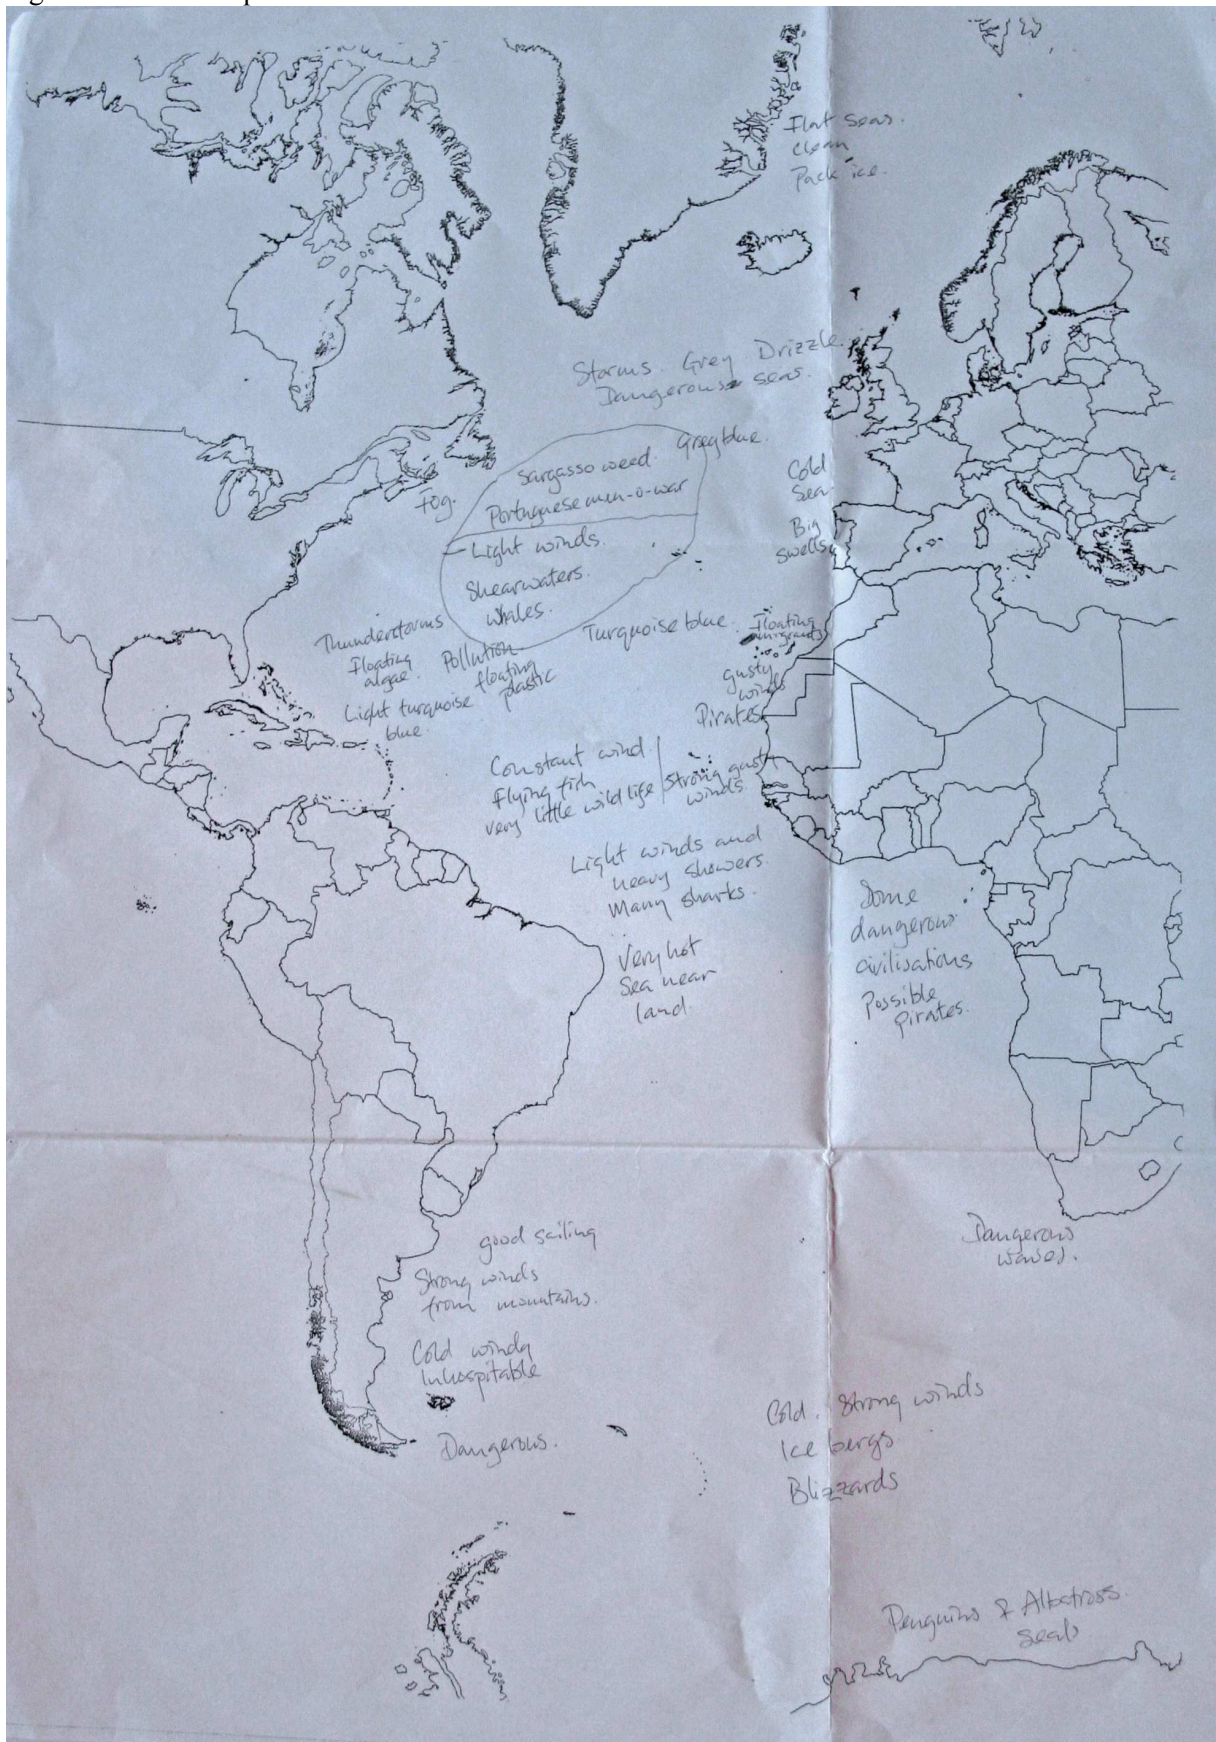 Flat seas.
clean
Pack ice.
Storms. Grey Drizzle.
Dangerous seas.
Grey blue.
Sargasso weed.
Portuguese men-o-war
Fog.
Cold
Sea.
Big
swells
Light winds.
Shearwaters.
Whales.
Thunderstorms
Floating
algae.
Pollution.
floating
plastic
Light turquoise
blue.
Turquoise blue.
Floating
immigrants
gusty
winds
Pirates
Constant wind
flying fish
very little wild life
Strong gusty
winds
Light winds and
heavy showers.
Many sharks.
Very hot
Sea near
land
Some
dangerous
civilisations
Possible
pirates.
good sailing
Strong winds
from mountains.
Cold windy
Inhospitable
Dangerous.
Dangerous
waves.
Cold. Strong winds
Ice bergs
Blizzards
Penguins & Albatross.
Seals